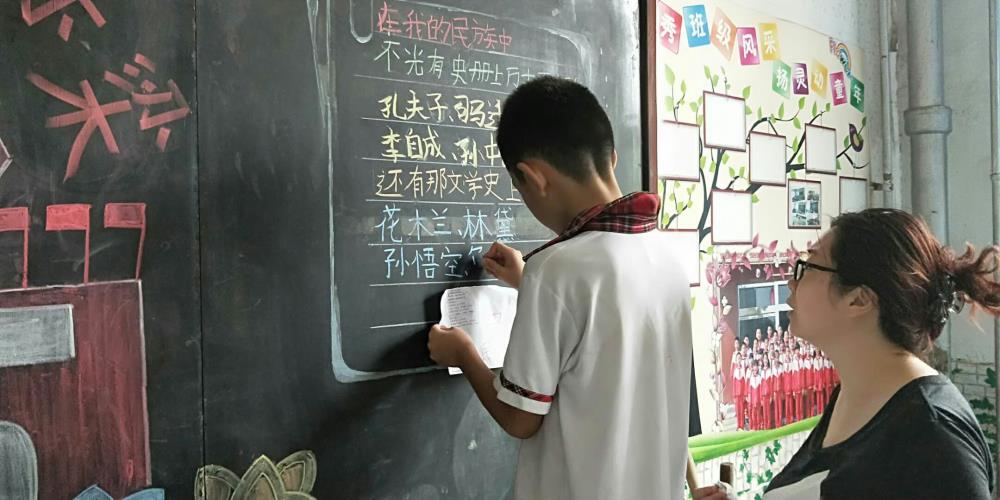 在我的民族中
不光有史册上万
孔夫子、司马
李自成、孙中
还有那文学史上
花木兰、林黛
孙悟空
秀班级风采
扬灵动童年